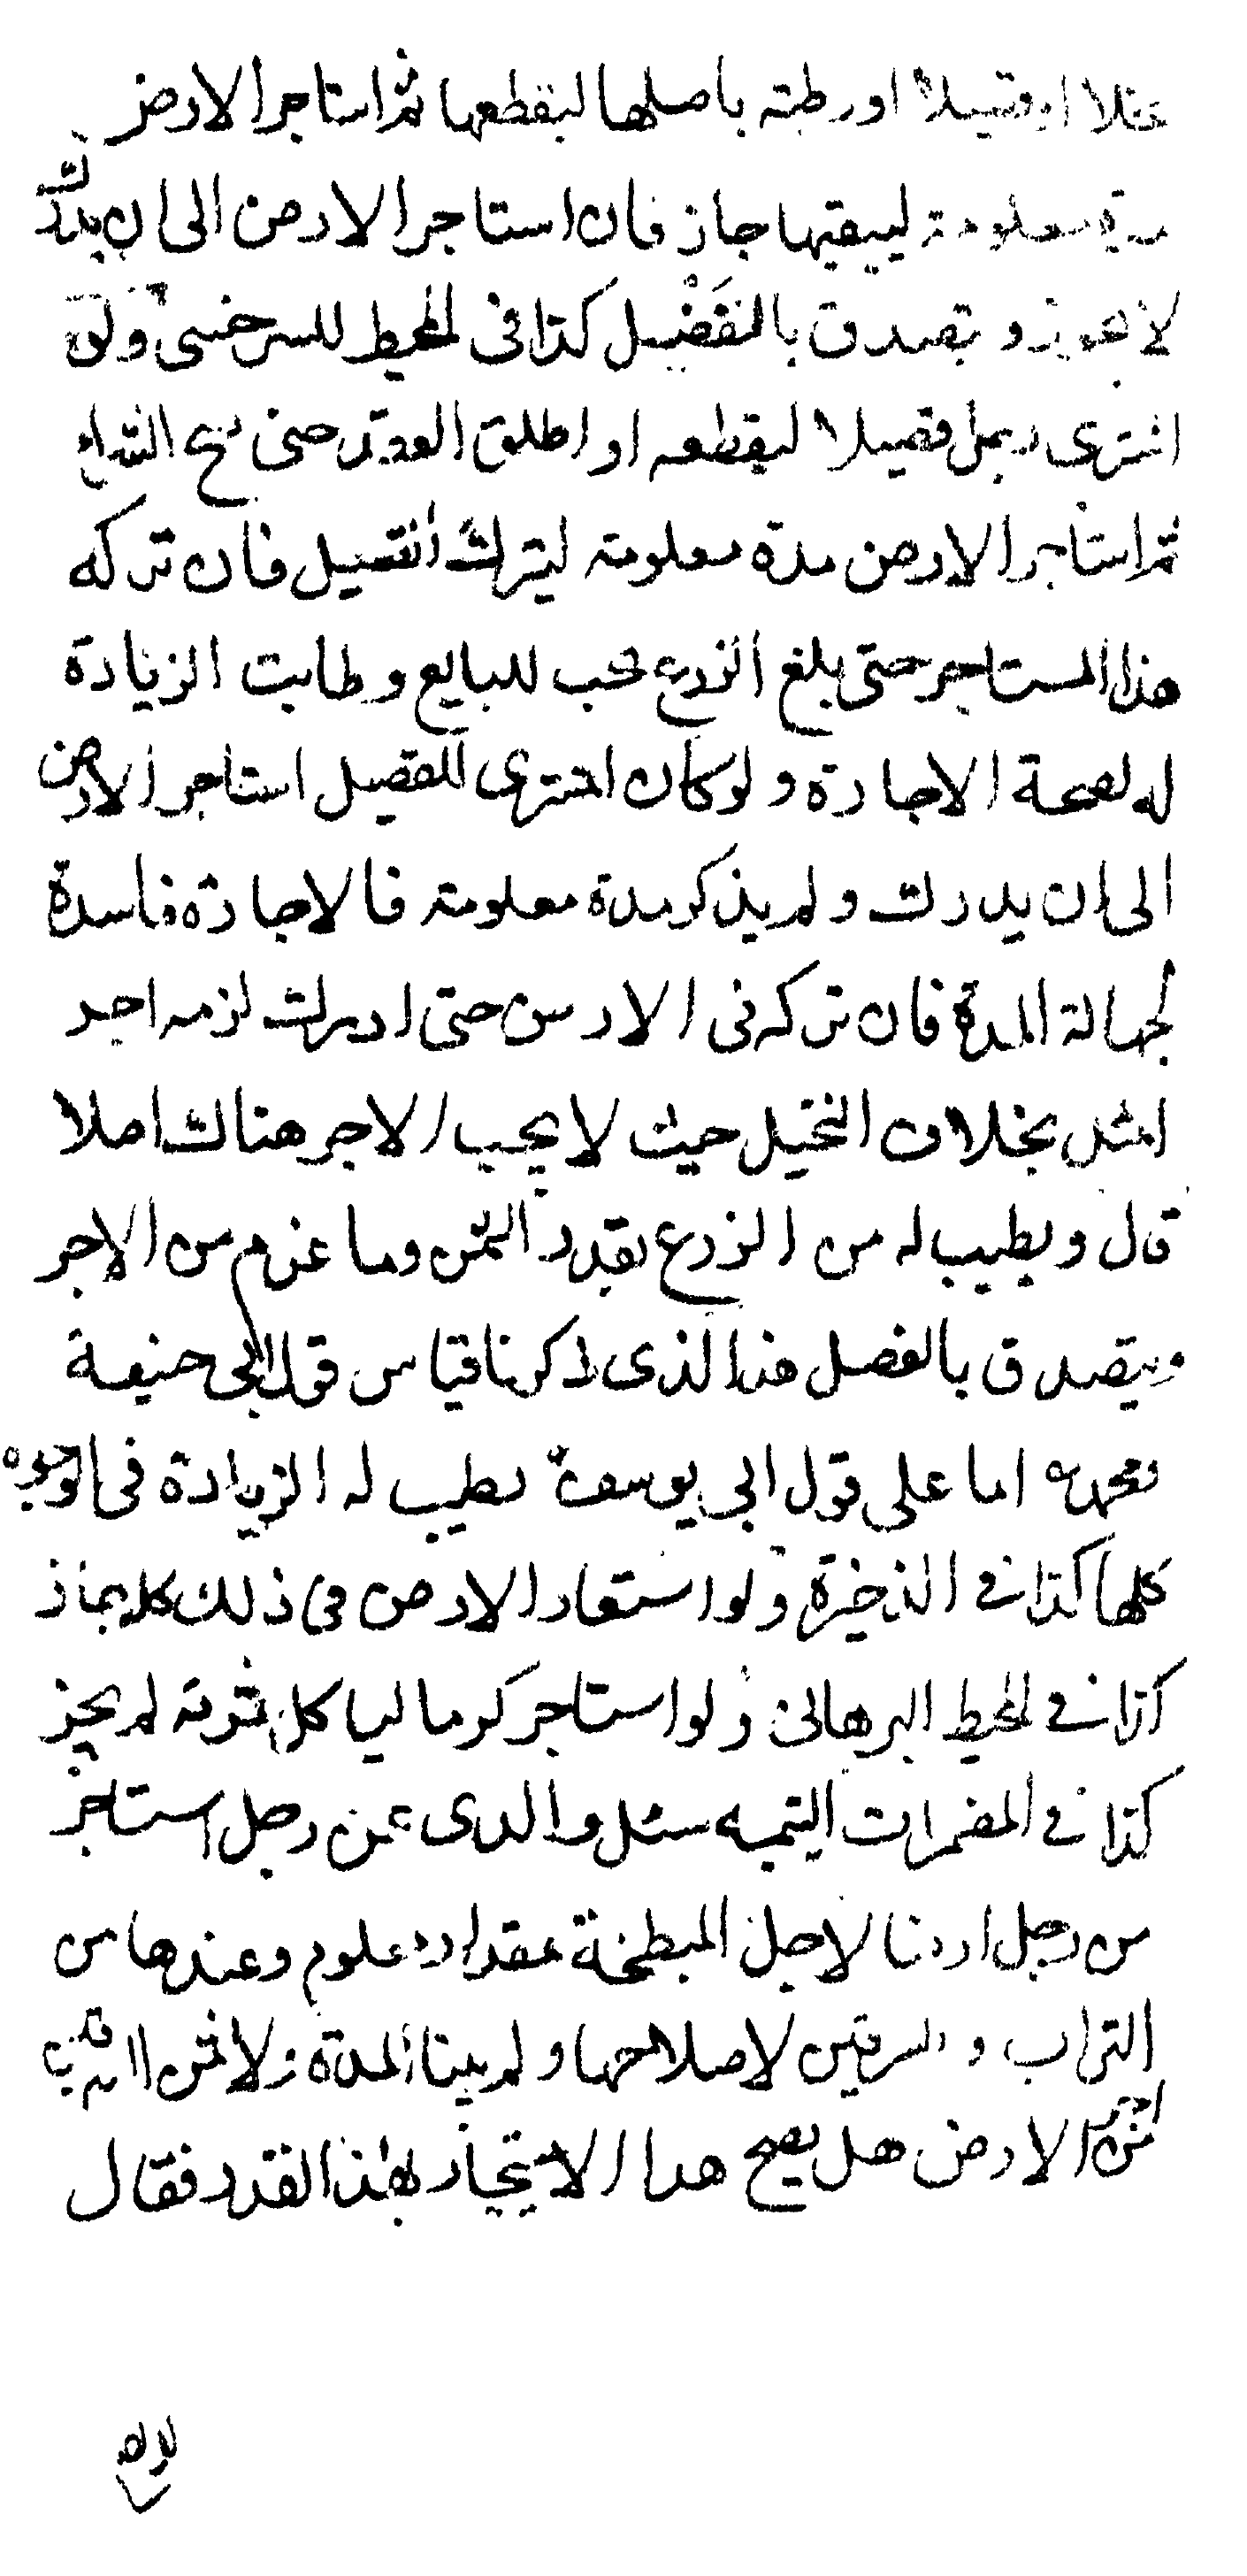 نخلا او قصيلا او رطبة باصلها ليقطعها ثم استاجر الارض
مدة معلومة ليبقيها جاز فان استاجر الارض الى ان يدرك
لا يجوز و يتصدق بالفضل كذا فى المحيط للسرخسى ولو
اشترى رجل قصيلا ليقطعه او اطلق العقد حتى صح الشراء
ثم استاجر الارض مدة معلومة ليترك القصيل فان تركه
هذا المستاجر حتى بلغ الزرع يجب للبايع وطابت الزيادة
له لصحة الاجارة ولو كان المشترى للقصيل استاجر الارض
الى ان يدرك ولم يذكر مدة معلومة فالاجارة فاسدة
لجهالة المدة فان تركه فى الارض حتى ادرك لزمه اجر
المثل بخلاف النخيل حيث لا يجب الاجر هناك اصلا
قال ويطيب له من الزرع بقدر الثمن وما غرم من الاجر
ويتصدق بالفضل هذا الذى ذكرنا قياس قول ابى حنيفة
ومحمد اما على قول ابى يوسف يطيب له الزيادة فى الوجوه
كلها كذا فى الذخيرة ولو استعار الارض فى ذلك كله جاز
كذا فى المحيط البرهانى ولو استاجر كرما لياكل ثمرته لم يجز
كذا فى المضمرات اليتيمه سئل والدى عمن رجل استاجر
من رجل ارضا لاجل المبطخة بمقدار معلوم وعندها من
التراب و السرقين لاصلاحها ولم يبينا المدة ولا ثمن السرقين
الارض هل يصح هذا الايجار بهذا القدر فقال